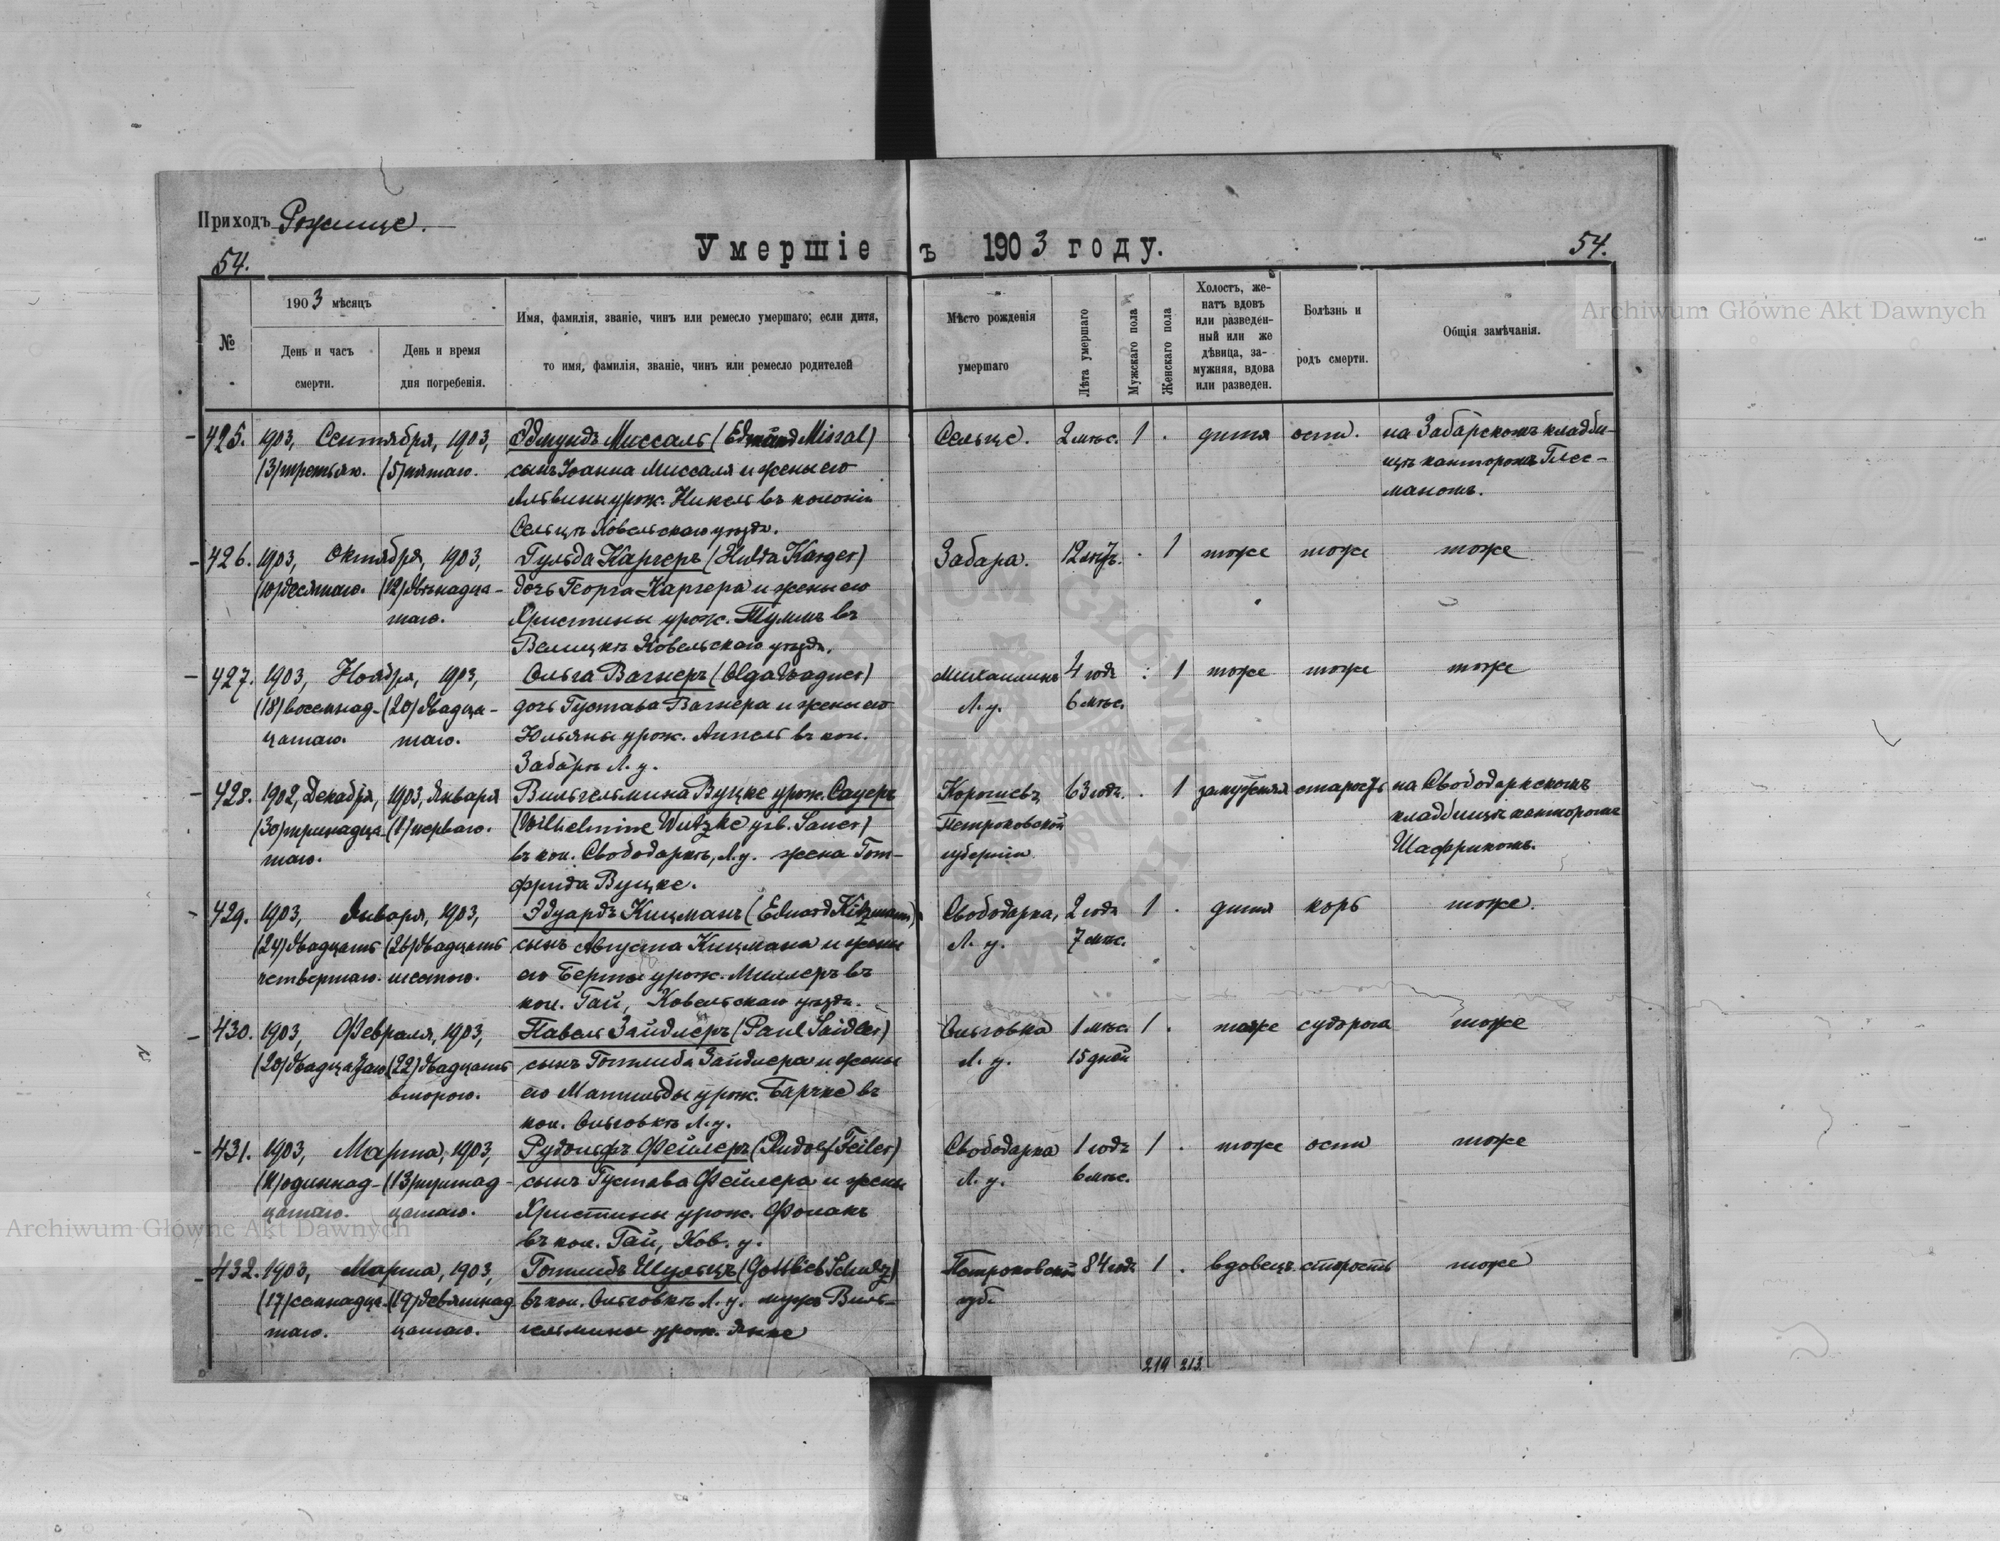 Приходъ Рожище.
Умершіе въ 1903 году.
54.
54.
№
1903 мѣсяцъ
День и часъ смерти.
День и время дня погребенія.
Имя, фамилія, званіе, чинъ или ремесло умершаго; если дитя,
то имя, фамилія, званіе, чинъ или ремесло родителей
Мѣсто рожденія умершаго
Лѣта умершаго
Мужскаго пола
Женскаго пола
Холостъ, же-
натъ вдовъ
или разведен-
ный или же
дѣвица, за-
мужняя, вдова
или разведен.
Болѣзнь и
родъ смерти.
Общія замѣчанія.
425. 1903, Сентября, 1903, Эдмундъ Миссаль (Edmund Missal) Сельце. 2 мѣс. 1 . дитя оспа. на Забарскомъ кладби-
(3) третьяго. (5) пятаго. сынъ Іоанна Миссаля и жены его щѣ канторомъ Глес-
Альвины урож. Никель въ колоніи маномъ.
Сельцѣ Ковельскаго уѣзда.
426. 1903, Октября, 1903, Гульда Каргеръ (Hulda Karger) Забара. 12 лѣтъ. . 1 тоже тоже тоже
(10) десятаго. (12) двѣнадца- дочь Георга Каргера и жены его
таго. Христины урож. Тумъ въ
Велицкѣ Ковельскаго уѣзда.
427. 1903, Ноября, 1903, Ольга Вагнеръ (Olga Wagner) Михаилинъ 4 года : 1 тоже тоже тоже
(18) восемнад- (20) двадца- дочь Густава Вагнера и жены его Л. у. 6 мѣс.
цатаго. таго. Юльяны урож. Аппель въ кол.
Забарѣ Л. у.
428. 1902, Декабря, 1903, Января Вильгельмина Вуцке урож. Сауеръ 63 года. . 1 замужняя старость на Свободаркскомъ
(30) тридца (1) перваго. (Wilhelmine Wutzke geb. Sauer) Петроковской кладбищѣ канторомъ
таго. въ кол. Свободаркѣ, Л. у. жена Гот- губерніи Шаффрикомъ.
фрида Вуцке.
429. 1903, Января, 1903, Эдуардъ Кицманъ (Eduard Kitzmann) Свободарка, 2 года 1 . дитя корь тоже.
(24) двадцать (26) двадцать сынъ Августа Кицмана и жены Л. у. 7 мѣс.
четвертаго. шестого. его Берты урож. Миллеръ въ
кол. Гай, Ковельскаго уѣзда.
430. 1903, Февраля, 1903, Павелъ Зайдлеръ (Paul Saidler) Ольговка 1 мѣс. 1 . тоже судорога тоже
(20) двадцатаго (22) двадцать сынъ Готлиба Зайдлера и жены Л. у. 15 дней
второго. его Матильды урож. Барчке въ
кол. Ольговкѣ Л. у.
431. 1903, Марта, 1903, Рудольфъ Фейлеръ (Rudolf Feiler) Свободарка 1 годъ 1 . тоже оспа тоже
(11) одиннад- (13) тринад- сынъ Густава Фейлера и жены Л. у. 6 мѣс.
цатаго. цатаго. Христины урож. Фолакъ
въ кол. Гай, Ков. у.
432. 1903, Марта, 1903, Готлибъ Шульцъ (Gottlieb Schulz) Петроковской 84 года 1 . вдовецъ старость тоже
(17) семнадца- (19) девятнад- въ кол. Ольговкѣ Л. у. мужъ Виль- губ.
таго. цатаго. гельмины урож. Янке
219 213.
Archiwum Główne Akt Dawnych
Archiwum Główne Akt Dawnych